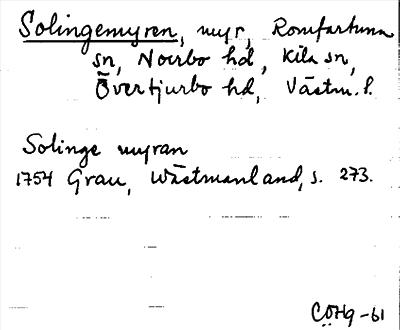 Solingemyren, myr, Romfartuna
sn, Norrbo hd, Kila sn,
Övertjurbo hd, Västm. l.
Solinge myran
1754 Grau, Wästmanland, s. 273.
CÖHg -61